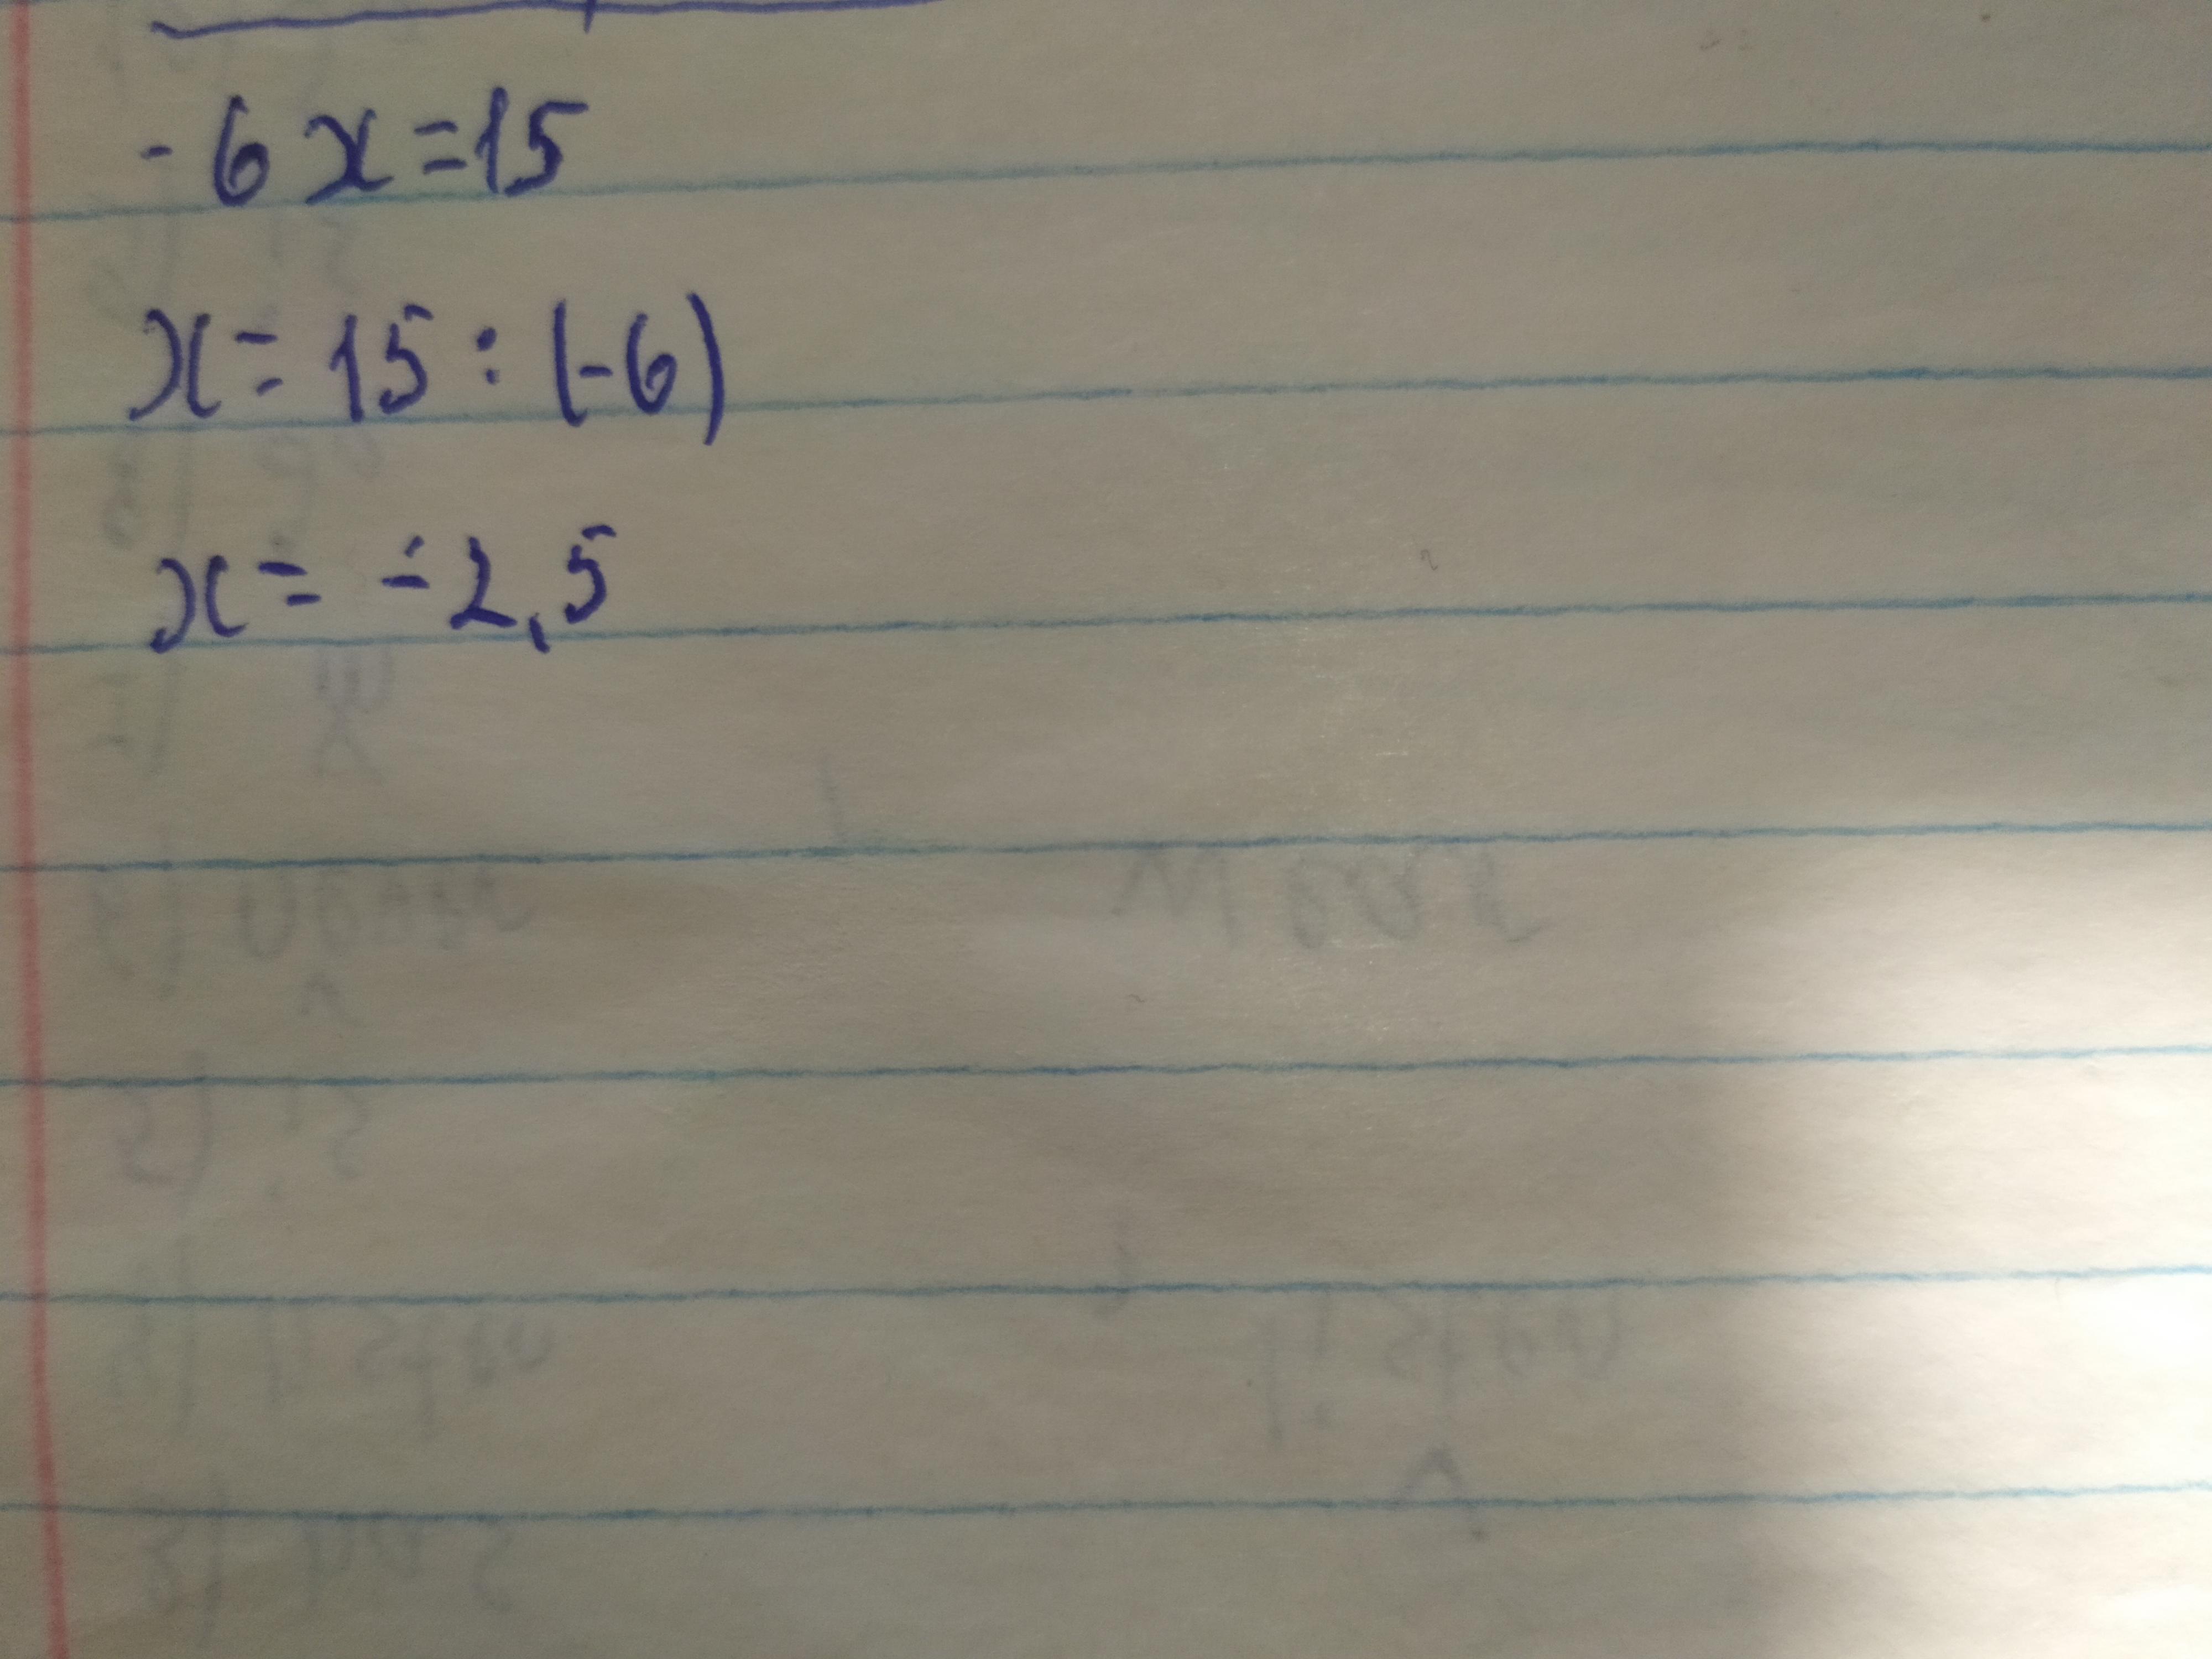 - 6x=15
x= 15 : (-6)
x= -2,5